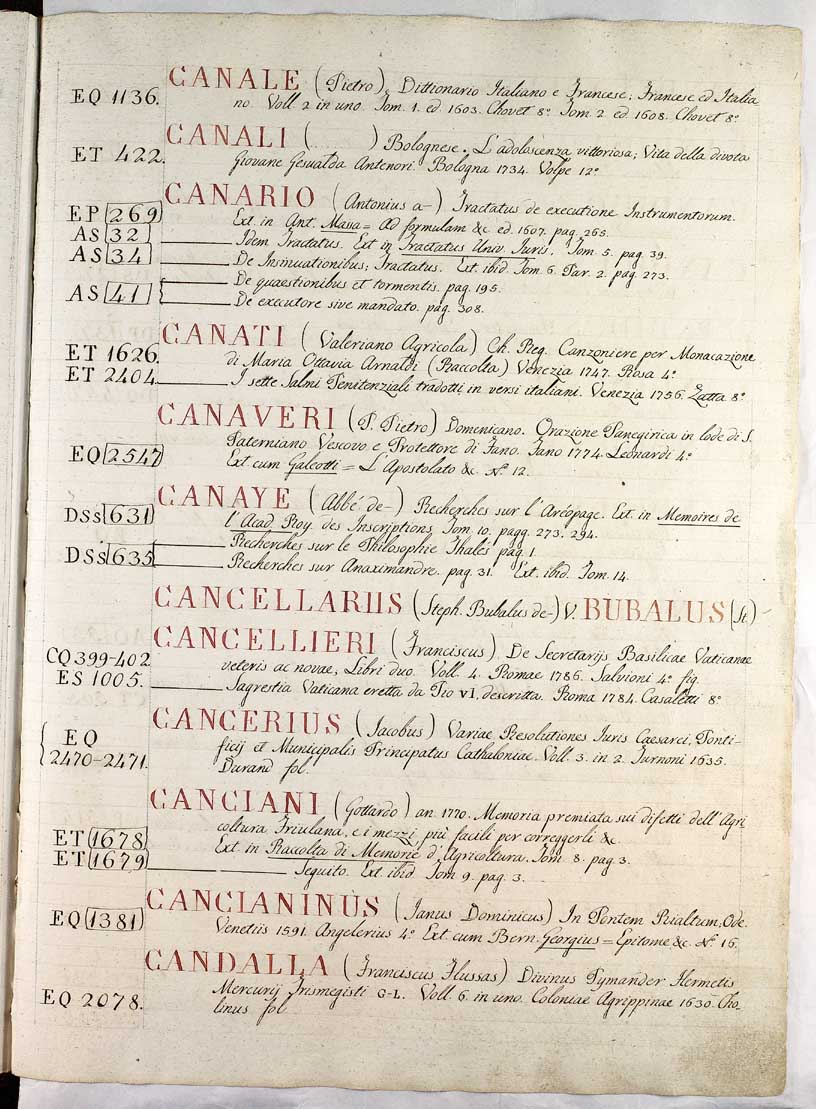 EQ 1136. CANALE (Pietro), Dittionario Italiano e Francese; Francese ed Italia
no. Voll. 2 in uno. Tom. 1. ed. 1603. Chovet 8.° Tom. 2. ed. 1608. Chovet 8.°
CANALI (. . . . . . ) Bolognese. L'adolescenza vittoriosa; Vita della divota
ET 422. Giovane Gesualda Antenori. Bologna 1734. Volpe 12.°
CANARIO (Antonius a-) Tractatus de executione Instrumentorum.
EP 269 Ext. in Ant. Massa = Ad formulam &c. ed. 1607. pag. 265.
AS 32 Idem Tractatus. Ext. in Tractatus Univ. Iuris. Tom. 5. pag. 39.
AS 34 De Insinuationibus; Tractatus. Ext. ibid. Tom. 6. Par. 2. pag. 273.
AS 41 De quaestionibus et tormentis. pag. 195.
De executore sive mandato. pag. 308.
CANATI (Valeriano Agricola) Ch. Reg. Canzoniere per Monacazione
ET 1626. di Maria Ottavia Arnaldi (Raccolta) Venezia 1747. Rosa 4.°
ET 2404. I sette Salmi Penitenziali tradotti in versi italiani. Venezia 1756. Zatta 8.°
CANAVERI (P. Pietro) Domenicano. Orazione Panegirica in lode di S.
Paterniano Vescovo e Protettore di Fano. Fano 1774. Leonardi 4.°
EQ 2547 Ext. cum Galeotti = L'Apostolato &c. N.° 12.
CANAYE (Abbé de-) Recherches sur l'Aréopage. Ext. in Memoires de
DSS 631 l'Acad. Roy. des Inscriptions. Tom. 10. pagg. 273. 294.
Recherches sur le Philosophie Thalés pag. 1.
DSS 635 Recherches sur Anaximandre. pag. 31. Ext. ibid. Tom. 14.
CANCELLARIIS (Steph. Bubalus de-) V. BUBALUS (St.)
CANCELLIERI (Franciscus). De Secretarijs Basilicae Vaticanae
CQ 399-402 veteris ac novae; Libri duo. Voll. 4. Romae 1786. Salvioni 4.° fig.
ES 1005. Sagrestia Vaticana eretta da Pio VI. descritta. Roma 1784. Casaletti 8.°
CANCERIUS (Jacobus) Variae Resolutiones Iuris Caesarei, Ponti-
EQ ficij et Municipalis Principatus Cathaloniae. Voll. 3. in 2. Turnoni 1635.
2470-2471. Durand fol.
CANCIANI (Gottardo) an. 1770. Memoria premiata sui difetti dell'Agri
coltura Friulana, e i mezzi più facili per correggerli &c.
ET 1678 Ext. in Raccolta di Memorie d'Agricoltura. Tom. 8. pag. 3.
ET 1679 Seguito. Ext. ibid. Tom. 9. pag. 3.
CANCIANINUS (Janus Dominicus) In Pontem Rialtum, Ode.
EQ 1381 Venetiis 1591. Angelerius 4.° Ext. cum Bern. Georgius = Epitome &c. N.° 16.
CANDALLA (Franciscus Flussas) Divinus Pymander Hermetis
EQ 2078. Mercurij Trismegisti G-L. Voll. 6. in uno. Coloniae Agrippinae 1630. Cho-
linus fol.